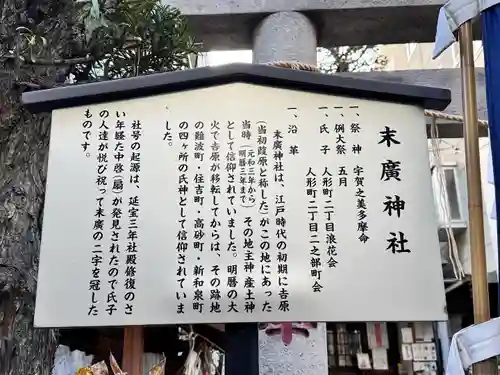 末廣神社
一、祭神　宇賀之美多摩命
一、例大祭　五月
一、氏子　人形町二丁目浪花会
人形町二丁目二之部町会
一、沿革
末廣神社は、江戸時代の初期に𠮷原
(当初葭原と称した)がこの地にあった
当時(元和三年から明暦三年まで)その地主神産土神
として信仰されていました。明暦の大
火で𠮷原が移転してからは、その跡地
の難波町・住吉町・高砂町・新和泉町
の四ヶ所の氏神として信仰されていま
した。
社号の起源は、延宝三年社殿修復のさ
い年経た中啓(扇)が発見されたので氏子
の人達が悦び祝って末廣の二字を冠した
ものです。